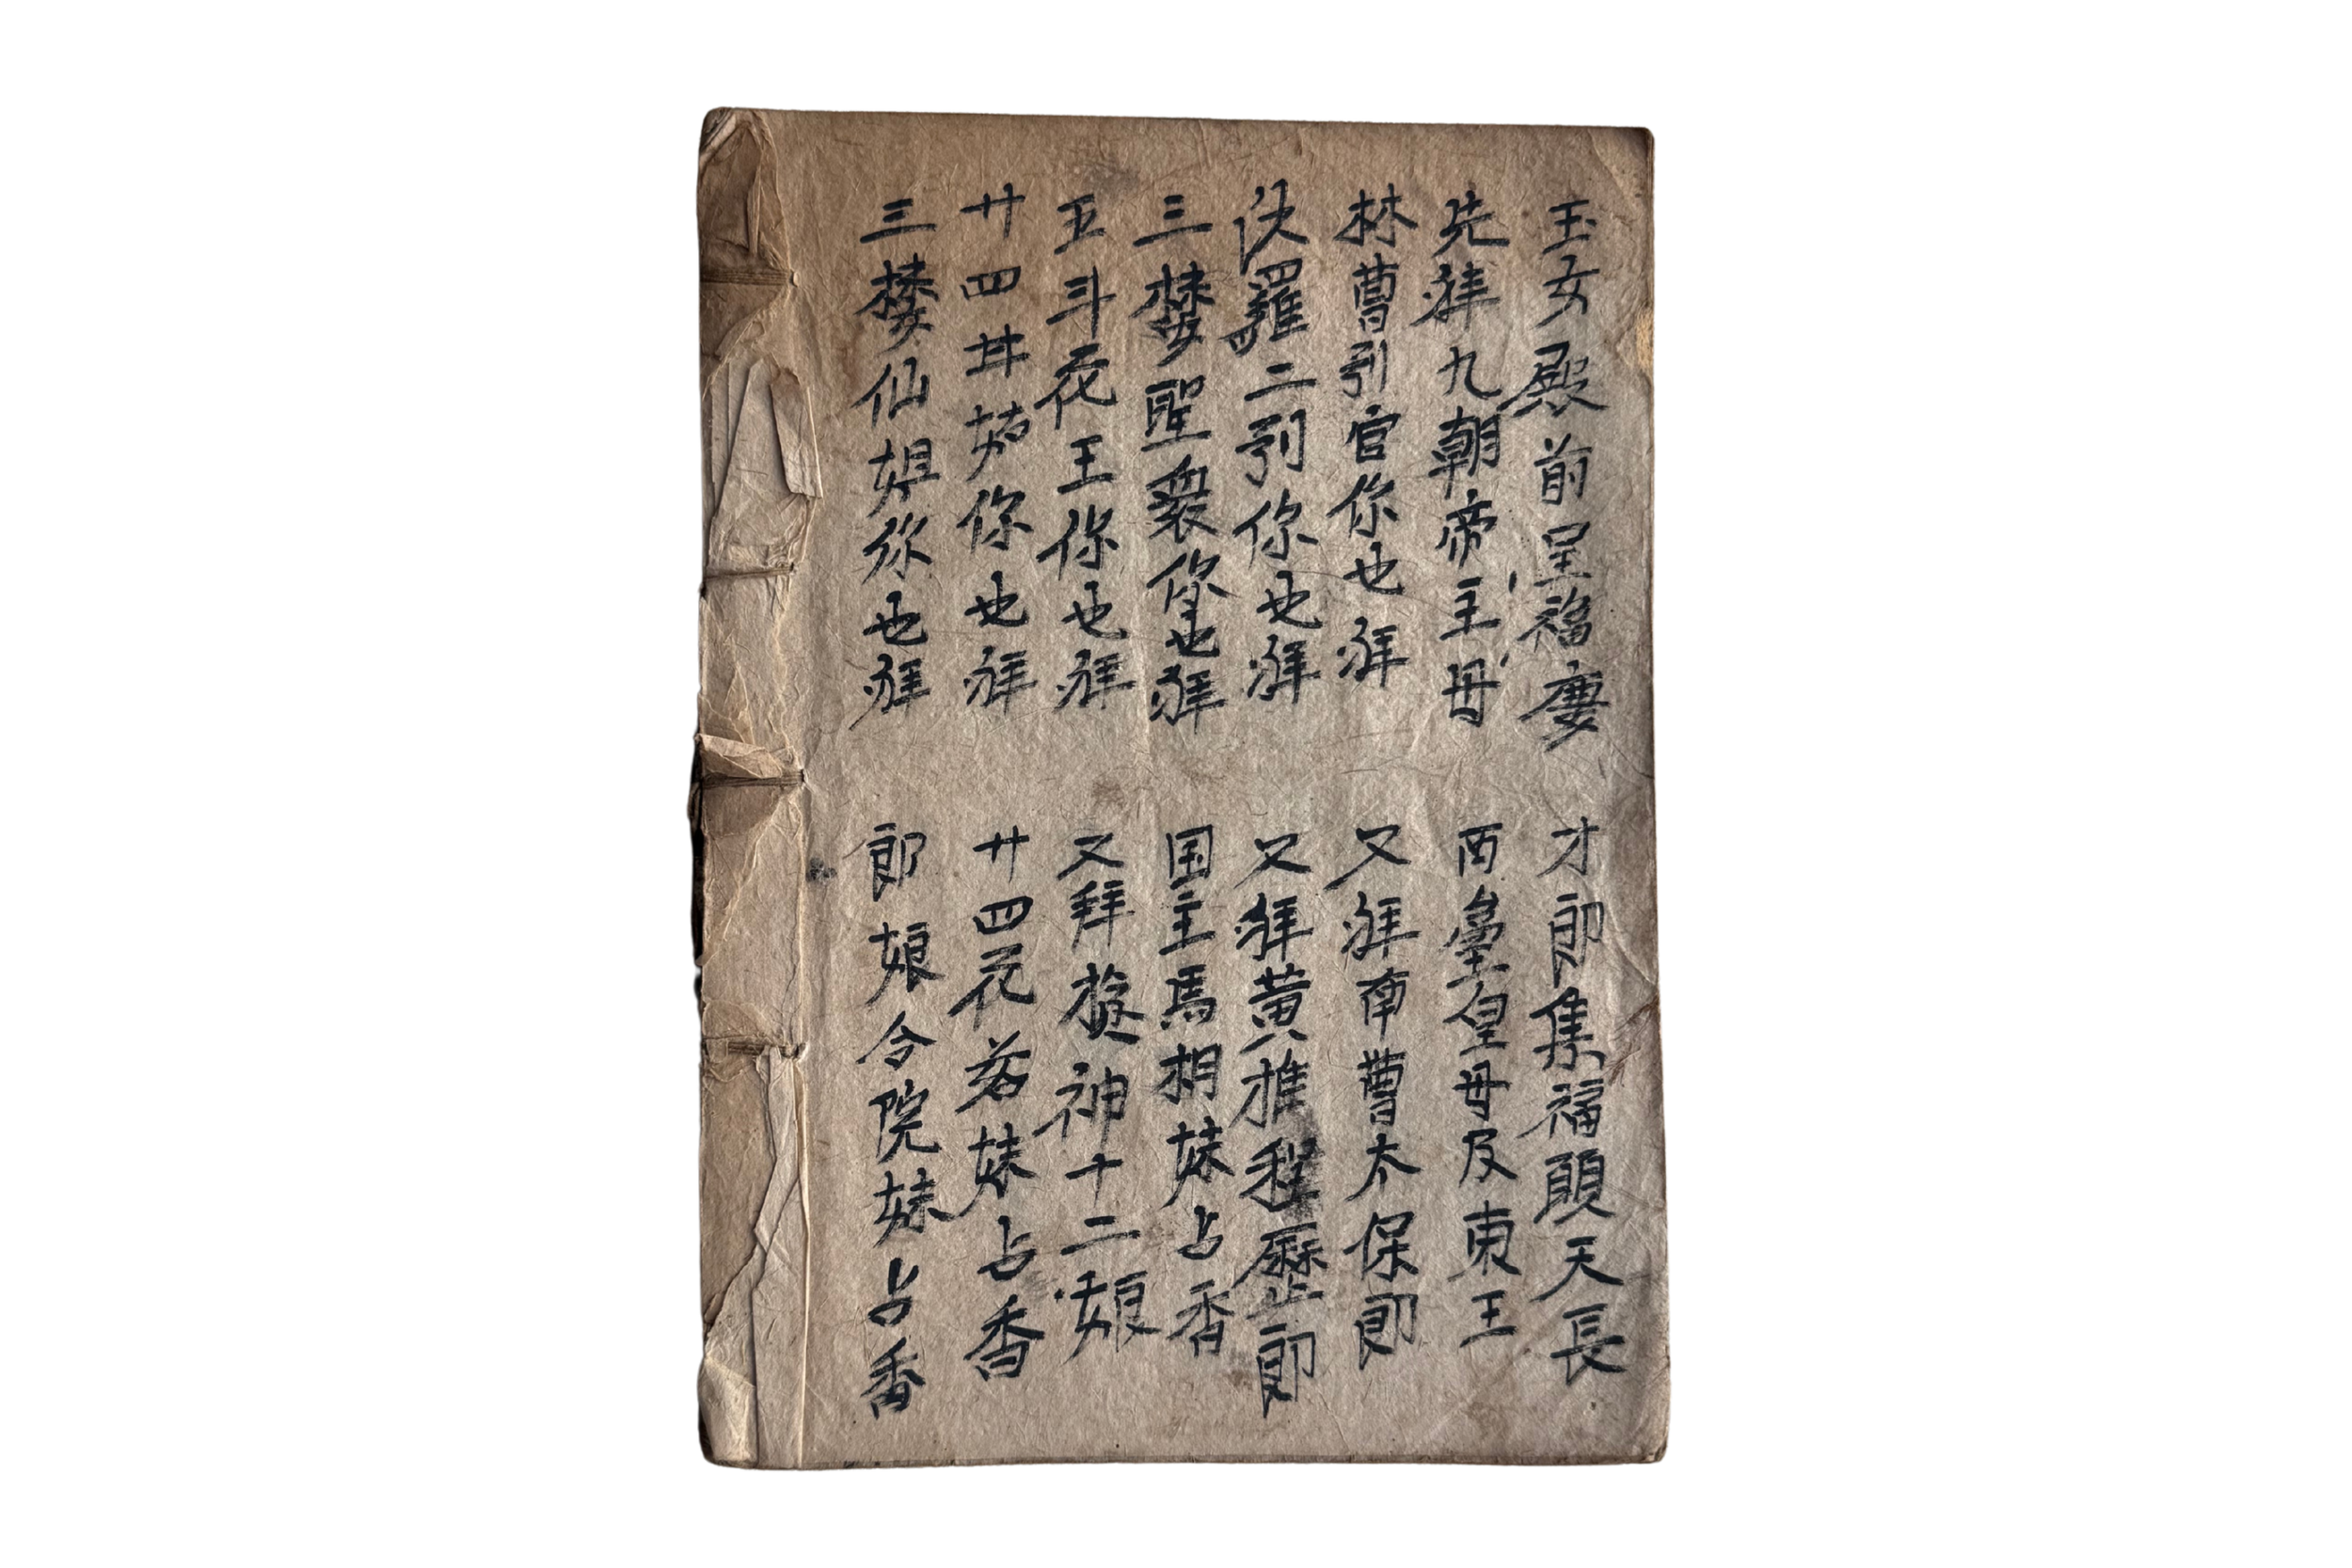 玉女殿前呈福慶
才郎集福願天長
先拜九朝帝主母
西臺皇母及東王
林曹引官你也拜
又拜南曹太保郎
伏羅二引你也拜
又拜黄推程歷郎
三樓聖衆你也拜
国主馬相妹占香
五斗花王你也拜
又拜旋神十二娘
廿四姑你也拜
廿四花若妹占香
三樓仙姐你也拜
郎娘令院妹占香